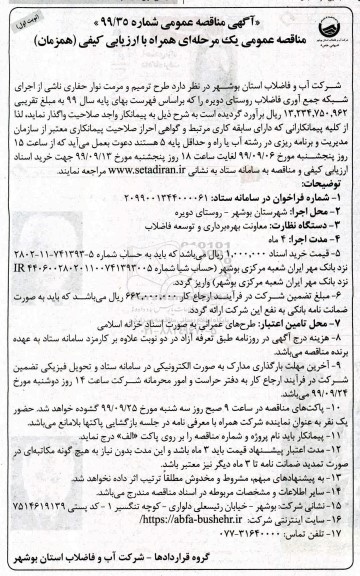 نوبت اول
«آگهی مناقصه عمومی شماره ۹۹/۳۵»
مناقصه عمومی یک مرحله‌ای همراه با ارزیابی کیفی (همزمان)
شرکت آب و فاضلاب استان بوشهر در نظر دارد طرح ترمیم و مرمت نوار حفاری ناشی از اجرای
شبکه جمع آوری فاضلاب روستای دویره را که براساس فهرست بهای پایه سال ۹۹ به مبلغ تقریبی
۱۳,۲۳۴,۷۵۰,۹۶۲ ریال برآورد گردیده است به شرح ذیل به پیمانکار واجد صلاحیت واگذار نماید، لذا
از کلیه پیمانکارانی که دارای سابقه کاری مرتبط و گواهی احراز صلاحیت پیمانکاری معتبر از سازمان
مدیریت و برنامه ریزی در رشته آب یا راه و حداقل پایه ۵ هستند دعوت بعمل می‌آید که از ساعت ۱۵
روز پنجشنبه مورخ ۹۹/۰۹/۰۶ لغایت ساعت ۱۸ روز پنجشنبه مورخ ۹۹/۰۹/۱۳ جهت خرید اسناد
ارزیابی کیفی و مناقصه به سامانه ستاد به نشانی www.setadiran.ir مراجعه نمایند.
توضیحات:
۱- شماره فراخوان در سامانه ستاد: ۲۰۹۹۰۰۱۳۴۴۰۰۰۰۶۱
۲- محل اجرا: شهرستان بوشهر - روستای دویره
۳- دستگاه نظارت: معاونت بهره‌برداری و توسعه فاضلاب
۴- مدت اجرا: ۴ ماه
۵- قیمت خرید اسناد ۱,۰۰۰,۰۰۰ ریال می‌باشد که باید به حساب شماره ۵-۷۴۱۳۹۳-۱۱-۲۸۰۲
نزد بانک مهر ایران شعبه مرکزی بوشهر (حساب شبا شماره IR ۴۴۰۶۰۰۲۸۰۲۰۱۱۰۰۷۴۱۳۹۳۰۰۵
نزد بانک مهر ایران شعبه مرکزی بوشهر) واریز گردد.
۶- مبلغ تضمین شرکت در فرآیند ارجاع کار ۶۶۲,۰۰۰,۰۰۰ ریال می‌باشد که باید به صورت
ضمانت نامه بانکی به نفع این شرکت ارائه گردد.
۷- محل تامین اعتبار: طرح‌های عمرانی به صورت اسناد خزانه اسلامی
۸- هزینه درج آگهی در روزنامه طبق تعرفه آزاد در دو نوبت علاوه بر کارمزد سامانه ستاد به عهده
برنده مناقصه می‌باشد.
۹- آخرین مهلت بارگذاری مدارک به صورت الکترونیکی در سامانه ستاد و تحویل فیزیکی تضمین
شرکت در فرآیند ارجاع کار به دفتر حراست و امور محرمانه شرکت ساعت ۱۴ روز دوشنبه مورخ
۹۹/۰۹/۲۴ می‌باشد.
۱۰- پاکت‌های مناقصه در ساعت ۹ صبح روز سه شنبه مورخ ۹۹/۰۹/۲۵ گشوده خواهد شد. حضور
یک نفر به عنوان نماینده شرکت همراه با معرفی نامه در جلسه بازگشایی پاکتها بلامانع می‌باشد.
۱۱- پیمانکار باید نام پروژه و شماره مناقصه را بر روی پاکت «الف» درج نماید.
۱۲- مدت اعتبار پیشنهاد قیمت باید ۳ ماه باشد و این مدت بدون نیاز به هیچ گونه مکاتبه‌ای در
صورت تمدید ضمانت نامه تا ۳ ماه دیگر نیز معتبر باشد.
۱۳- به پیشنهادهای مبهم، مشروط و مخدوش مطلقا ترتیب اثر داده نخواهد شد.
۱۴- سایر اطلاعات و مشخصات مربوطه در اسناد مناقصه مندرج می‌باشد.
۱۵- نشانی شرکت: بوشهر - خیابان رئیسعلی دلواری - کوچه تنگسیر ۱ - کد پستی ۷۵۱۴۶۱۹۱۳۹
۱۶- سایت اینترنتی شرکت: https://abfa-bushehr.ir/
۱۷- تلفن تماس: ۳۱۶۴۰۰۰۰-۰۷۷
گروه قراردادها – شرکت آب و فاضلاب استان بوشهر